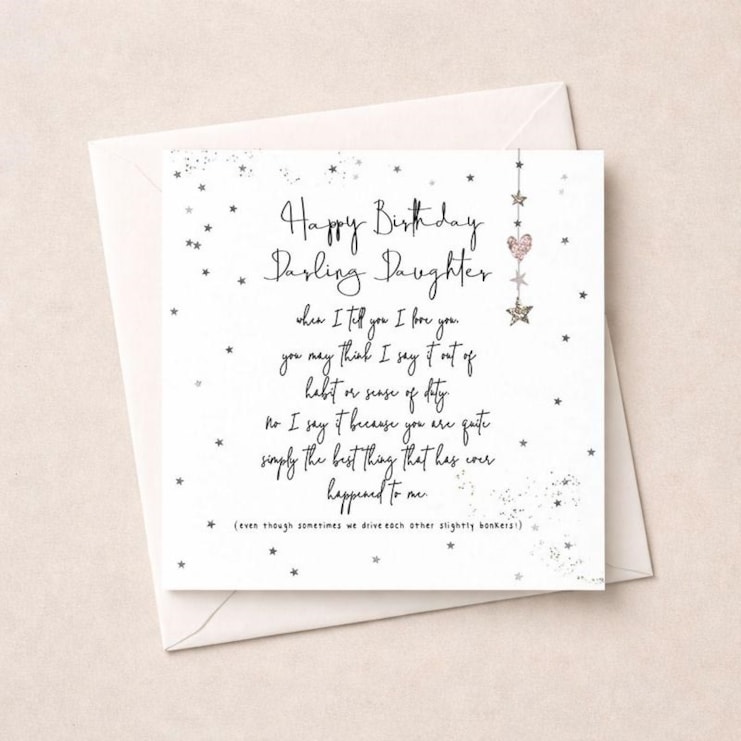 Happy Birthday
Darling Daughter
when I tell you I love you,
you may think I say it out of
habit or sense of duty.
No I say it because you are quite
simply the best thing that has ever
happened to me.
(even though sometimes we drive each other slightly bonkers!)